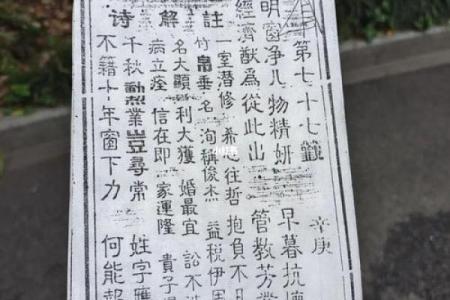 註解诗
第七十七籤
辛庚
明窗净几物精妍 早暮抗
經濟猷為從此出 管教芳
一室潜修 希心往哲 抱負不
竹帛垂名 洵稱俊杰 益税伊
名大顯 利大獲 婚最宜 訟不
病立痊 信在即 家運隆 貴子
千秋勳業豈尋常 姓字應
不籍十年窗下力 何能